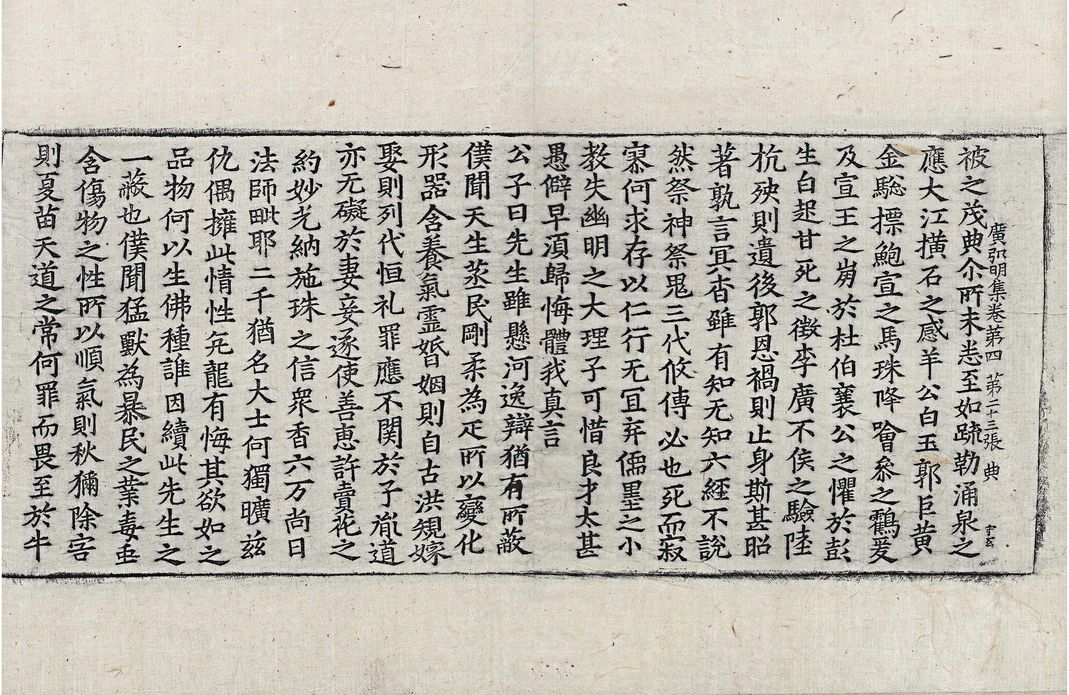 被之茂典尒所未悉至如疏勒涌泉之
廣弘明集卷第四　第二十三張　典
應大江撗石之感羊公白玉郭巨黃
金駹摽鮑宣之馬珠降噲叅之鶴爰
及宣王之崩於杜伯襄公之懼於彭
生白起甘死之徵李廣不侯之驗陸
抗殃則遺後郭恩禍則止身斯甚昭
著孰言冥杳雖有知无知六經不說
然祭神祭鬼三代攸傳必也死而寂
寥何求存以仁行无宜弃儒墨之小
教失幽明之大理子可惜良才太甚
愚僻早湏歸悔體我真言
公子曰先生雖懸河逸辯猶有所蔽
僕聞天生蒸民剛柔為疋所以變化
形器含養氣靈婚姻則自古洪規嫁
娶則列代恒礼罪應不関於子胤道
亦无礙於妻妾遂使善惠許賣花之
約妙光納施珠之信衆香六万尚曰
法師毗耶二千猶名大士何獨曠兹
仇偶擁此情性亢龍有悔其欲如之
品物何以生佛種誰因續此先生之
一蔽也僕聞猛獸為暴民之業毒虫
含傷物之性所以順氣則秋獮除害
則夏苗天道之常何罪而畏至於牛